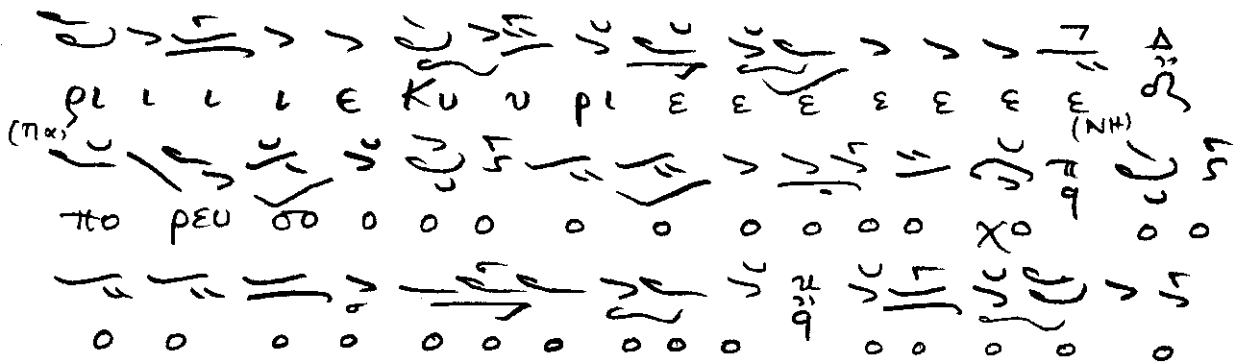 ρι ι ι ι ε Κυ υ ρι ε ε ε ε ε ε ε Δ
(πα) πο ρευ σο ο ο ο ο ο ο ο ο ο χο π q (ΝΗ) ο ο
ο ο ο ο ο ο ο ο ο ο π q ο ο ο ο ο